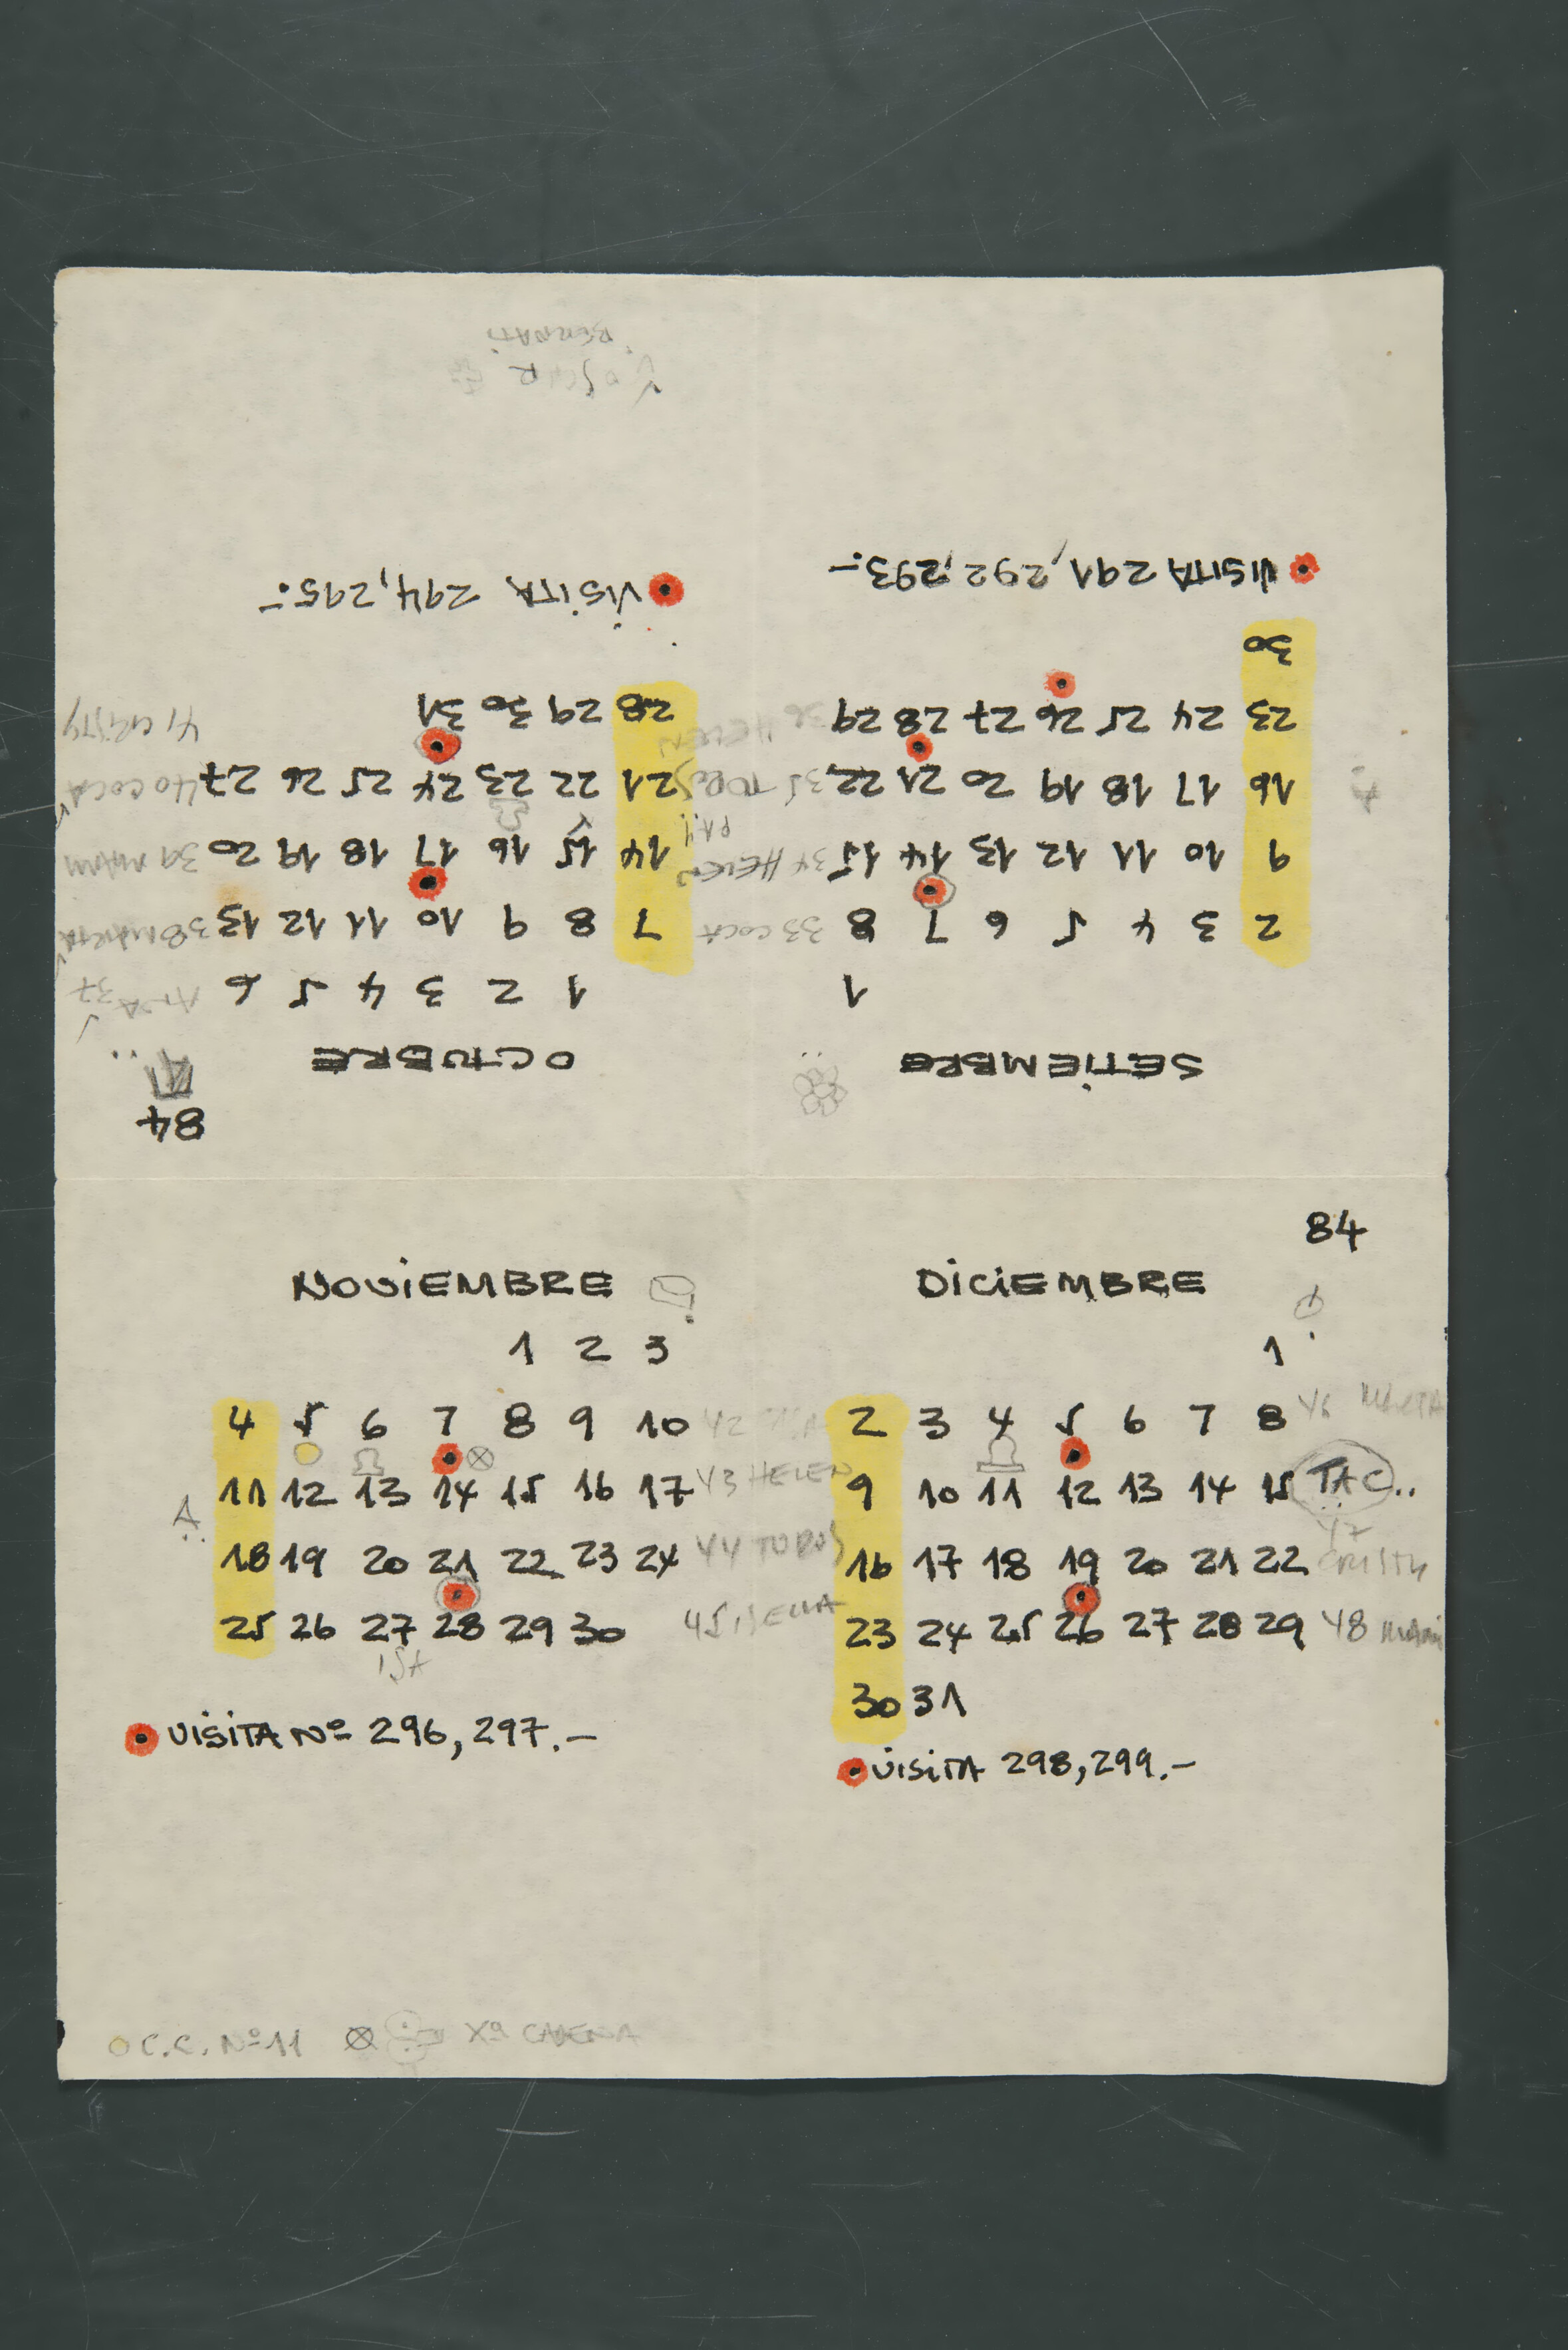 84
SETIEMBRE
1
2 3 4 5 6 7 8 33 COCA
9 10 11 12 13 14 15 34 HELEN
16 17 18 19 20 21 22 35 TOROS
23 24 25 26 27 28 29 36 HELEN
30
VISITA 291, 292, 293.-
OCTUBRE
1 2 3 4 5 6 ANA 37
7 8 9 10 11 12 13 38 MARTA
14 15 16 17 18 19 20 39
21 22 23 24 25 26 27 40 COCA
28 29 30 31 41 CRISTY
VISITA 294, 295.-
BERNATI
84
NOVIEMBRE
1 2 3
4 5 6 7 8 9 10 42
11 12 13 14 15 16 17 43 HELEN
18 19 20 21 22 23 24 44 TOROS
25 26 27 28 29 30 45
ISA
VISITA Nº 296, 297.-
DICIEMBRE
1
2 3 4 5 6 7 8 46 MARTA
9 10 11 12 13 14 15 TAC..
47
16 17 18 19 20 21 22 CRISTY
23 24 25 26 27 28 29 48
30 31
VISITA 298, 299.-
C.C. Nº 11 Xª CADENA